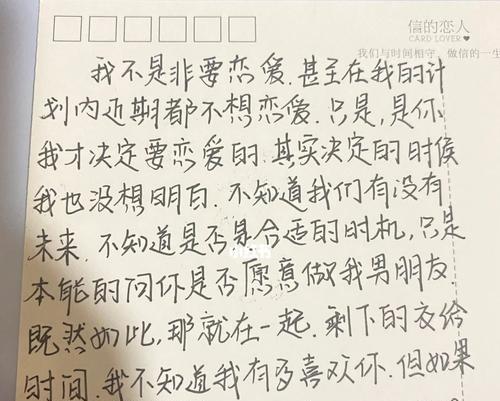 信的恋人
CARD LOVER
我们与时间相守,做信的一生
我不是非要恋爱.甚至在我的计
划内近期都不想恋爱.只是,是你
我才决定要恋爱的.其实决定的时候
我也没想明白.不知道我们有没有
未来.不知道是否是合适的时机,只是
本能的问你是否愿意做我男朋友.
既然如此,那就在一起.剩下的交给
时间.我不知道我有多喜欢你.但如果